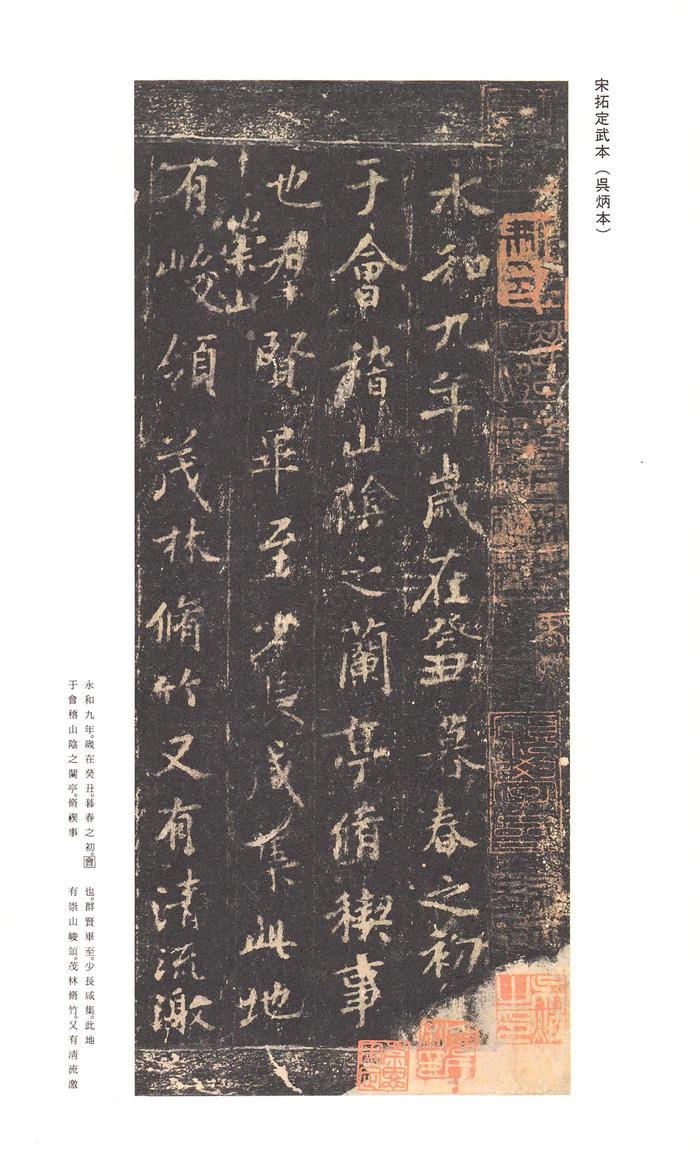 宋拓定武本（吳炳本）
永和九年歲在癸丑暮春之初
于會稽山陰之蘭亭脩禊事
也羣賢畢至少長咸集此地
有崇山峻領茂林脩竹又有清流激
永和九年。歲在癸丑。暮春之初。會
于會稽山陰之蘭亭。脩禊事
也。群賢畢至。少長咸集。此地
有崇山峻領。茂林脩竹。又有清流激